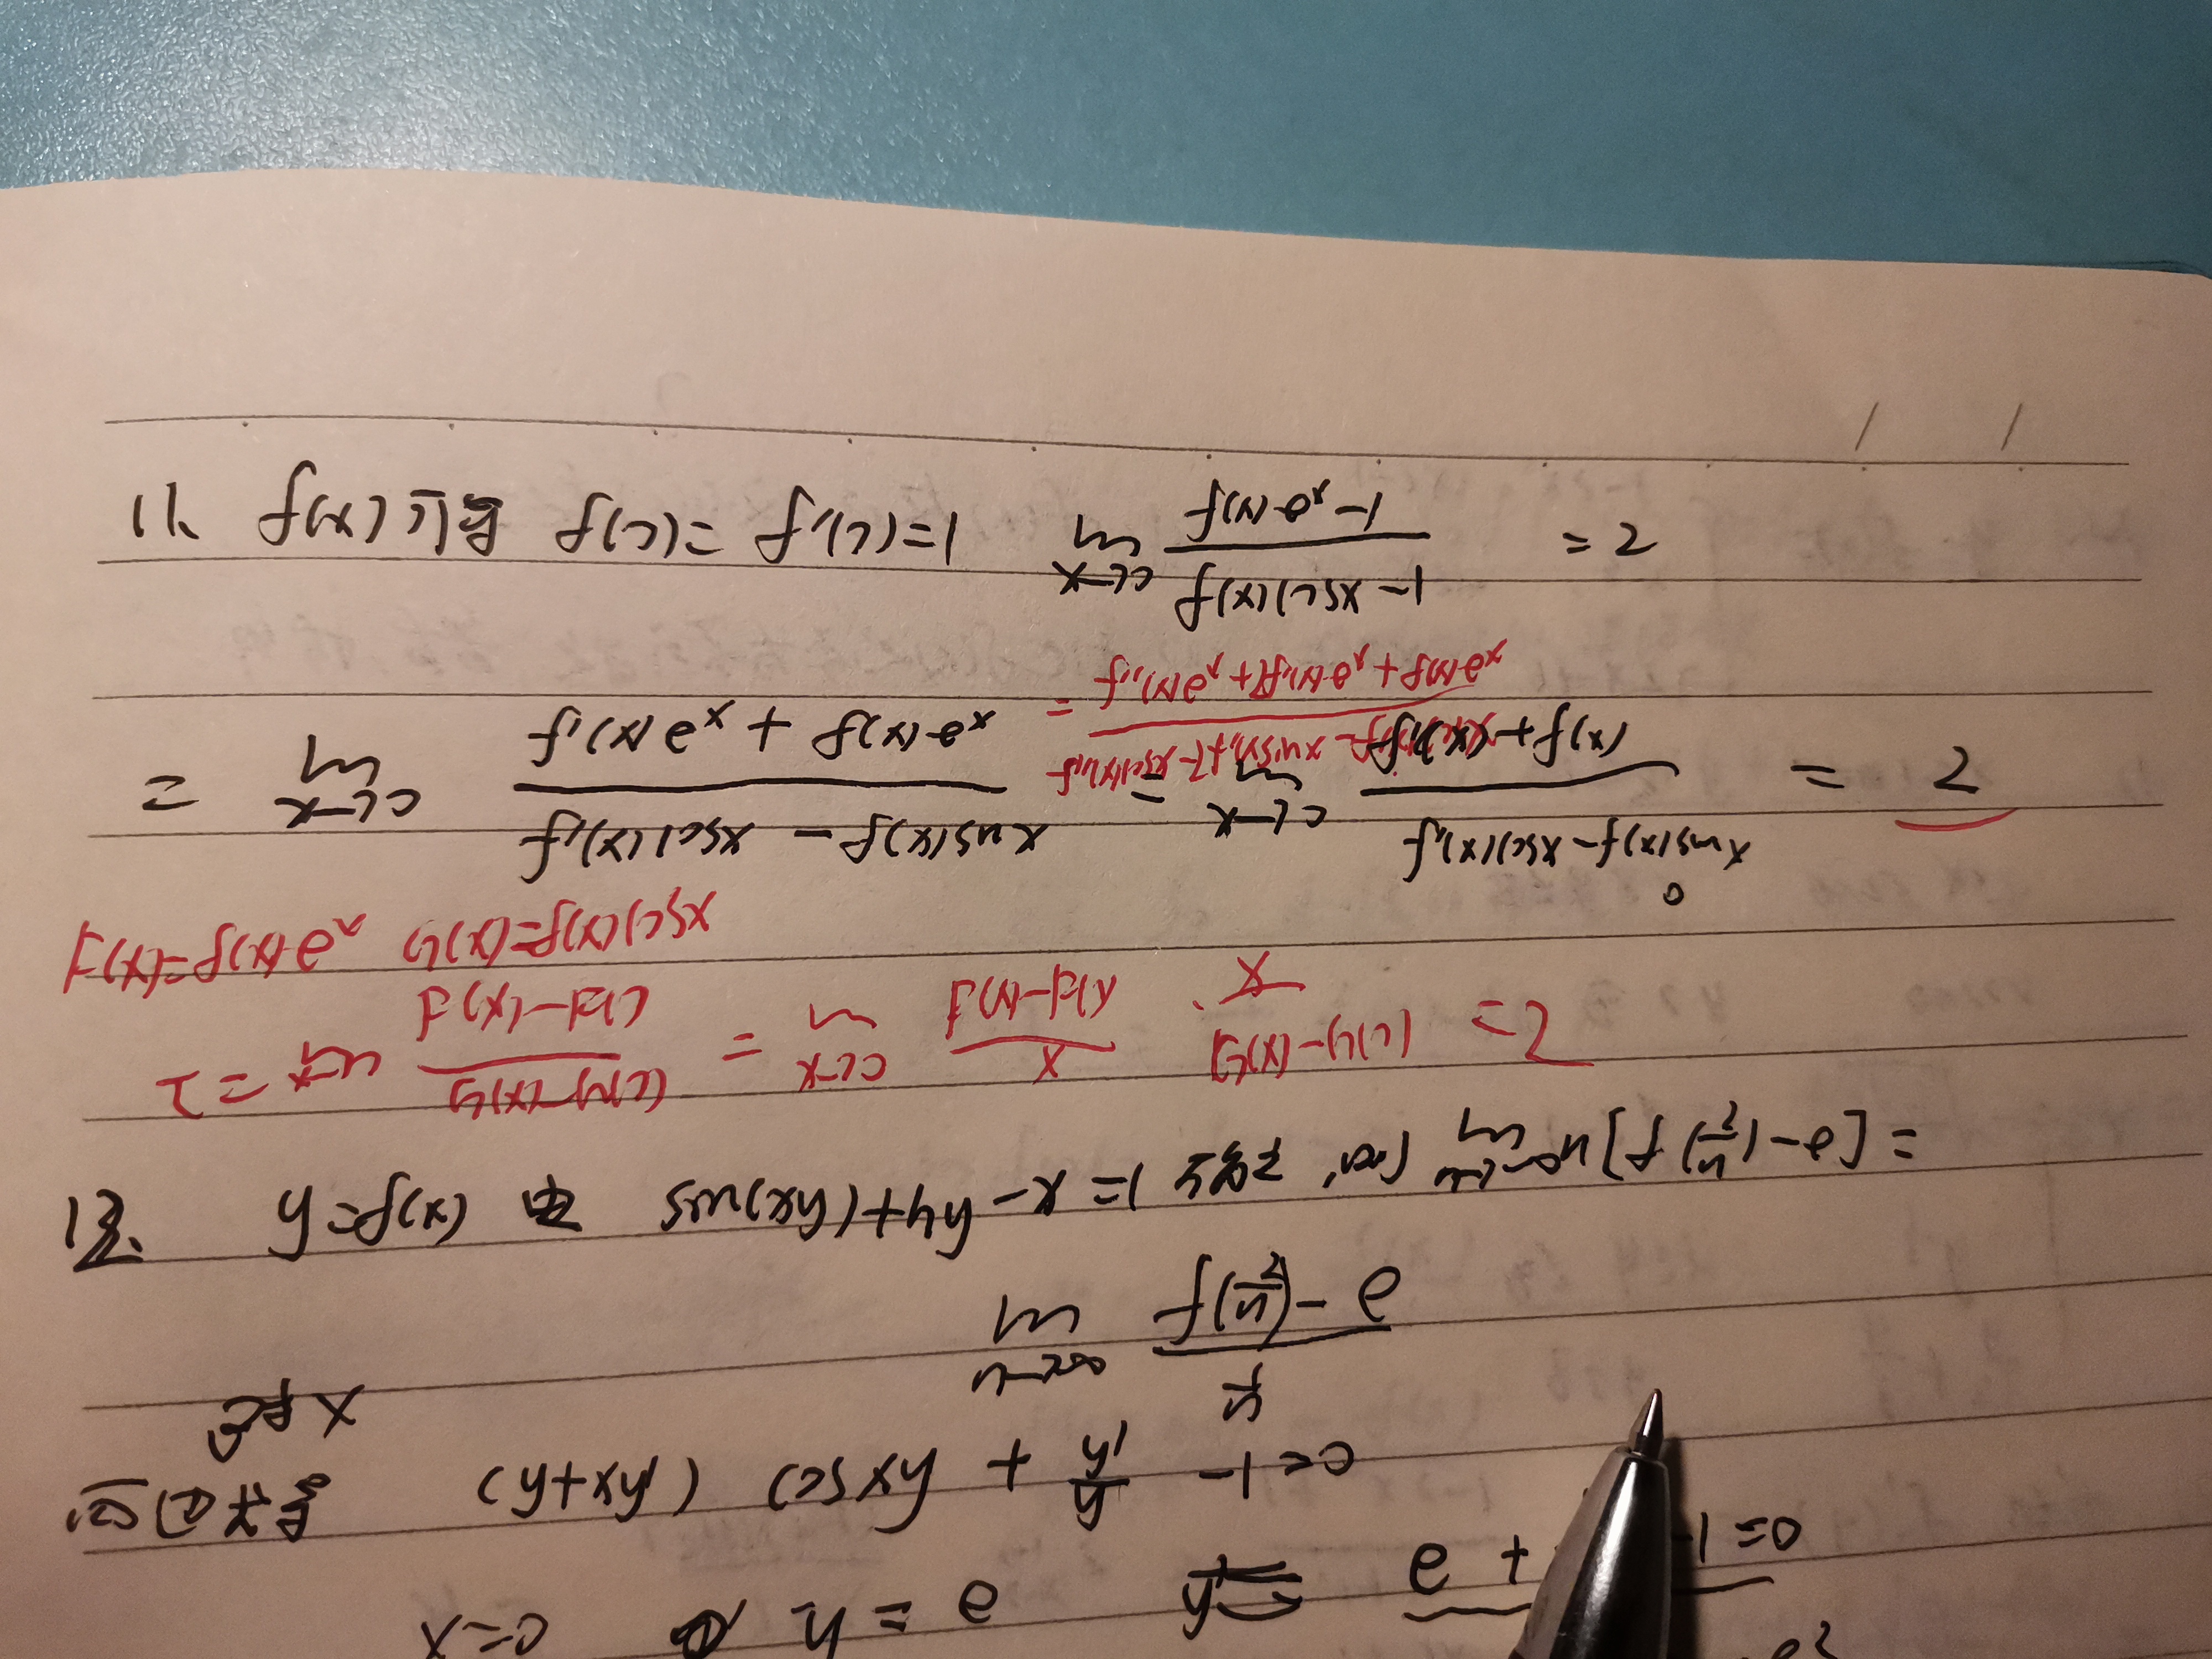 11、 f(x)可导 f(0)= f'(0)=1 lim x→0 (f(x)e^x-1)/(f(x)cosx-1) =2
= (f''(x)e^x+2f'(x)e^x+f(x)e^x)/
= lim x→0 (f'(x)e^x+f(x)e^x)/(f'(x)cosx-f(x)sinx) = lim x→0 (f'(x)+f(x))/(f'(x)cosx-f(x)sinx) = 2
0
F(x)=f(x)e^x G(x)=f(x)cosx
I= lim x→0 (F(x)-F(0))/(G(x)-G(0)) = lim x→0 (F(x)-F(0))/x · x/(G(x)-G(0)) =2
12、 y=f(x) 由 sin(xy)+lny-x=1 确定,则 lim n→∞ n[f(2/n)-e]=
lim n→∞ (f(2/n)-e)/(1/n)
对x
两边求导 (y+xy') cosxy + y'/y -1=0
x=0 时 y=e y' e+ -1=0
e²